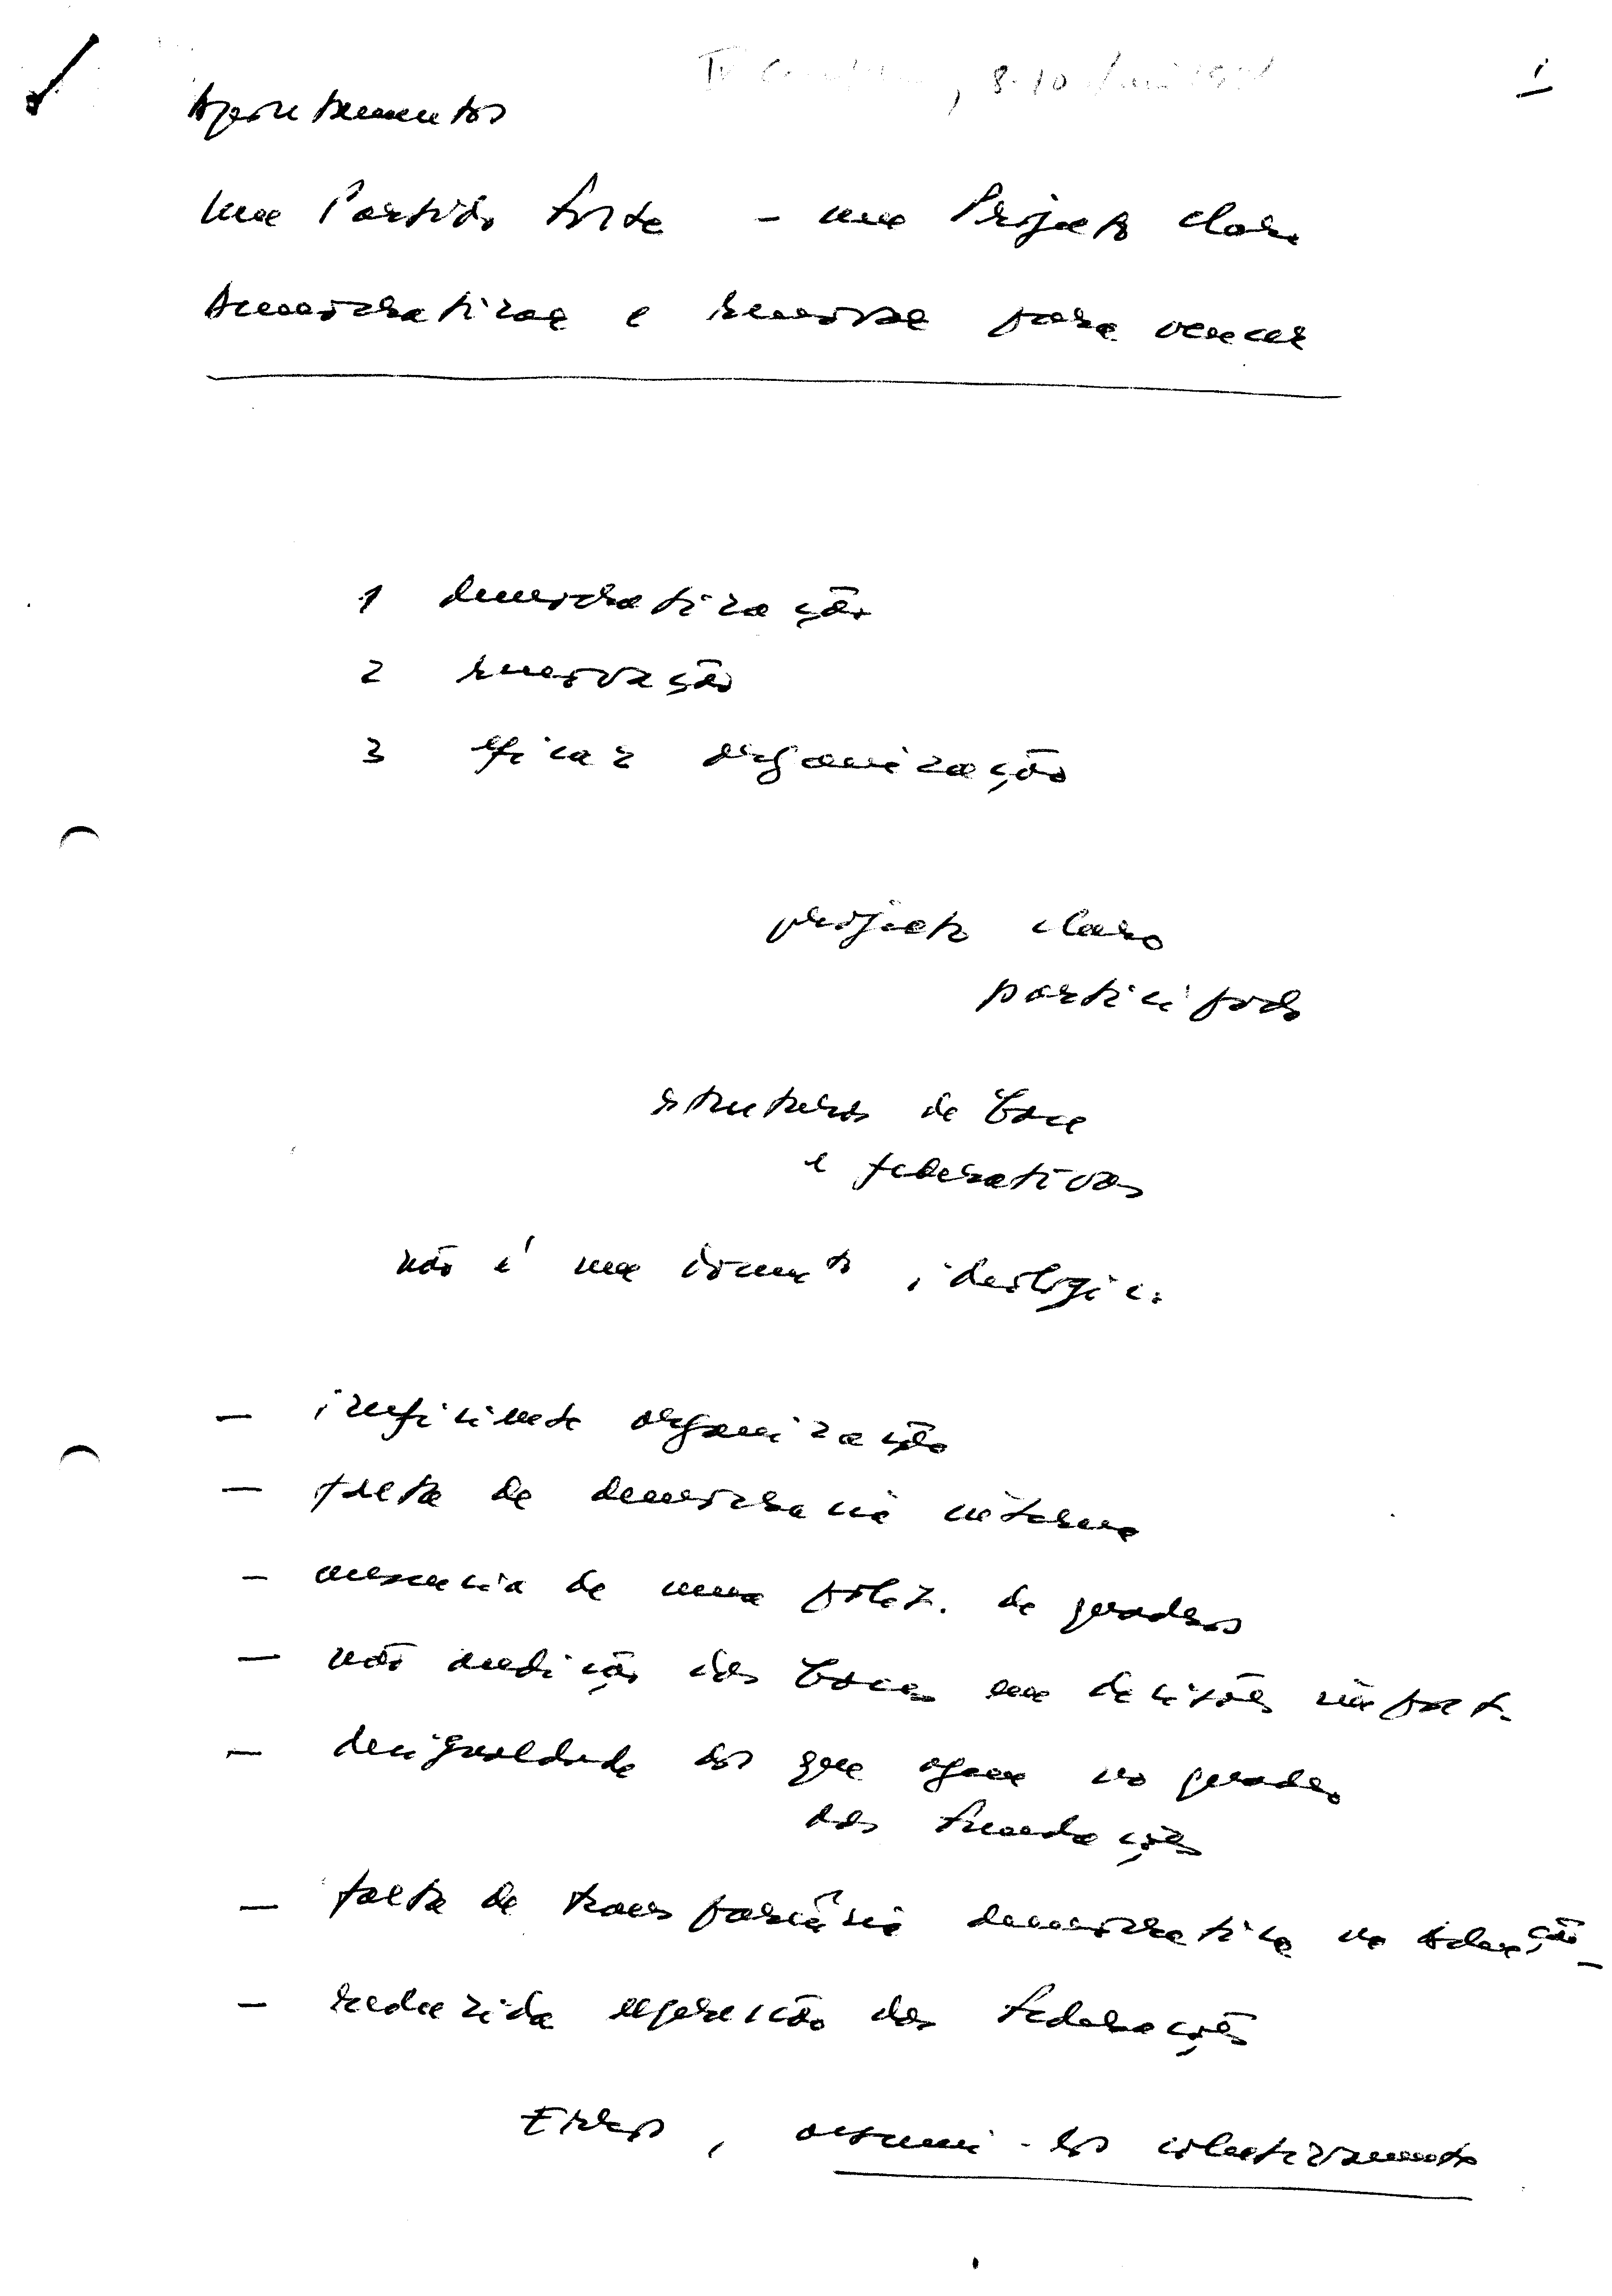 1
Apontamentos
um Partido forte - um Projecto claro
Democratizar e renovar para vencer
1 democratização
2 renovação
3 eficaz organização
projecto claro
participado
estruturas de base
e federativas
não é um docum to ideológico
- ineficiente organização
- falta de democracia interna
- ausencia de uma polít. de quadros
- não audição das bases em decisões import.
- desigualdade dos que agem no quadro
das fundações
- falta de transparência democratica na
- reduzida das federações
Erros, assumi-los colectivamente